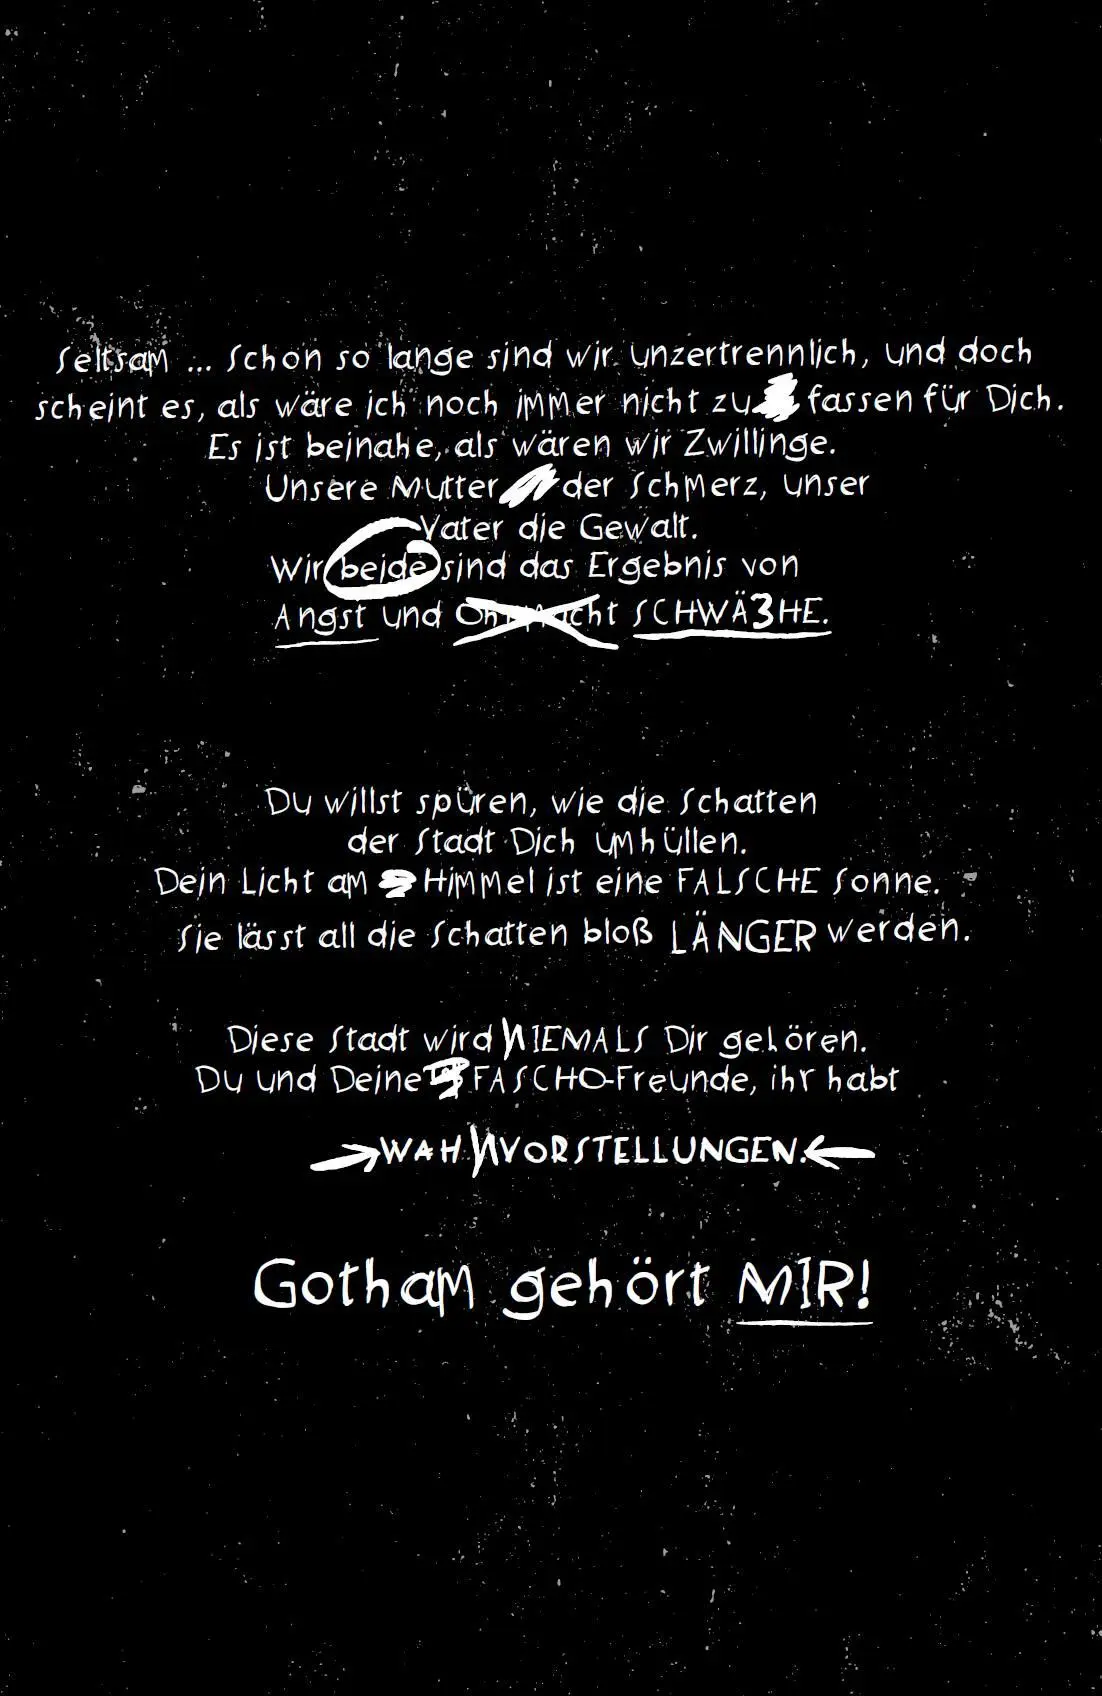 Seltsam ... Schon so lange sind wir unzertrennlich, und doch
scheint es, als wäre ich noch immer nicht zu fassen für Dich.
Es ist beinahe, als wären wir Zwillinge.
Unsere Mutter der Schmerz, unser
Vater die Gewalt.
Wir beide sind das Ergebnis von
Angst und SCHWÄ3HE.
Du willst spüren, wie die Schatten
der Stadt Dich umhüllen.
Dein Licht am Himmel ist eine FALSCHE Sonne.
Sie lässt all die Schatten bloß LÄNGER werden.
Diese Stadt wird NIEMALS Dir gehören.
Du und Deine FASCHO-Freunde, ihr habt
WAHNVORSTELLUNGEN.
Gotham gehört MIR!